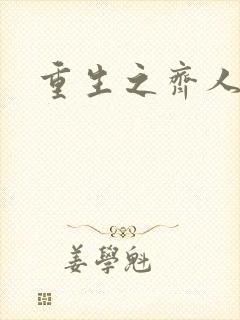 重生之齊人
姜學魁